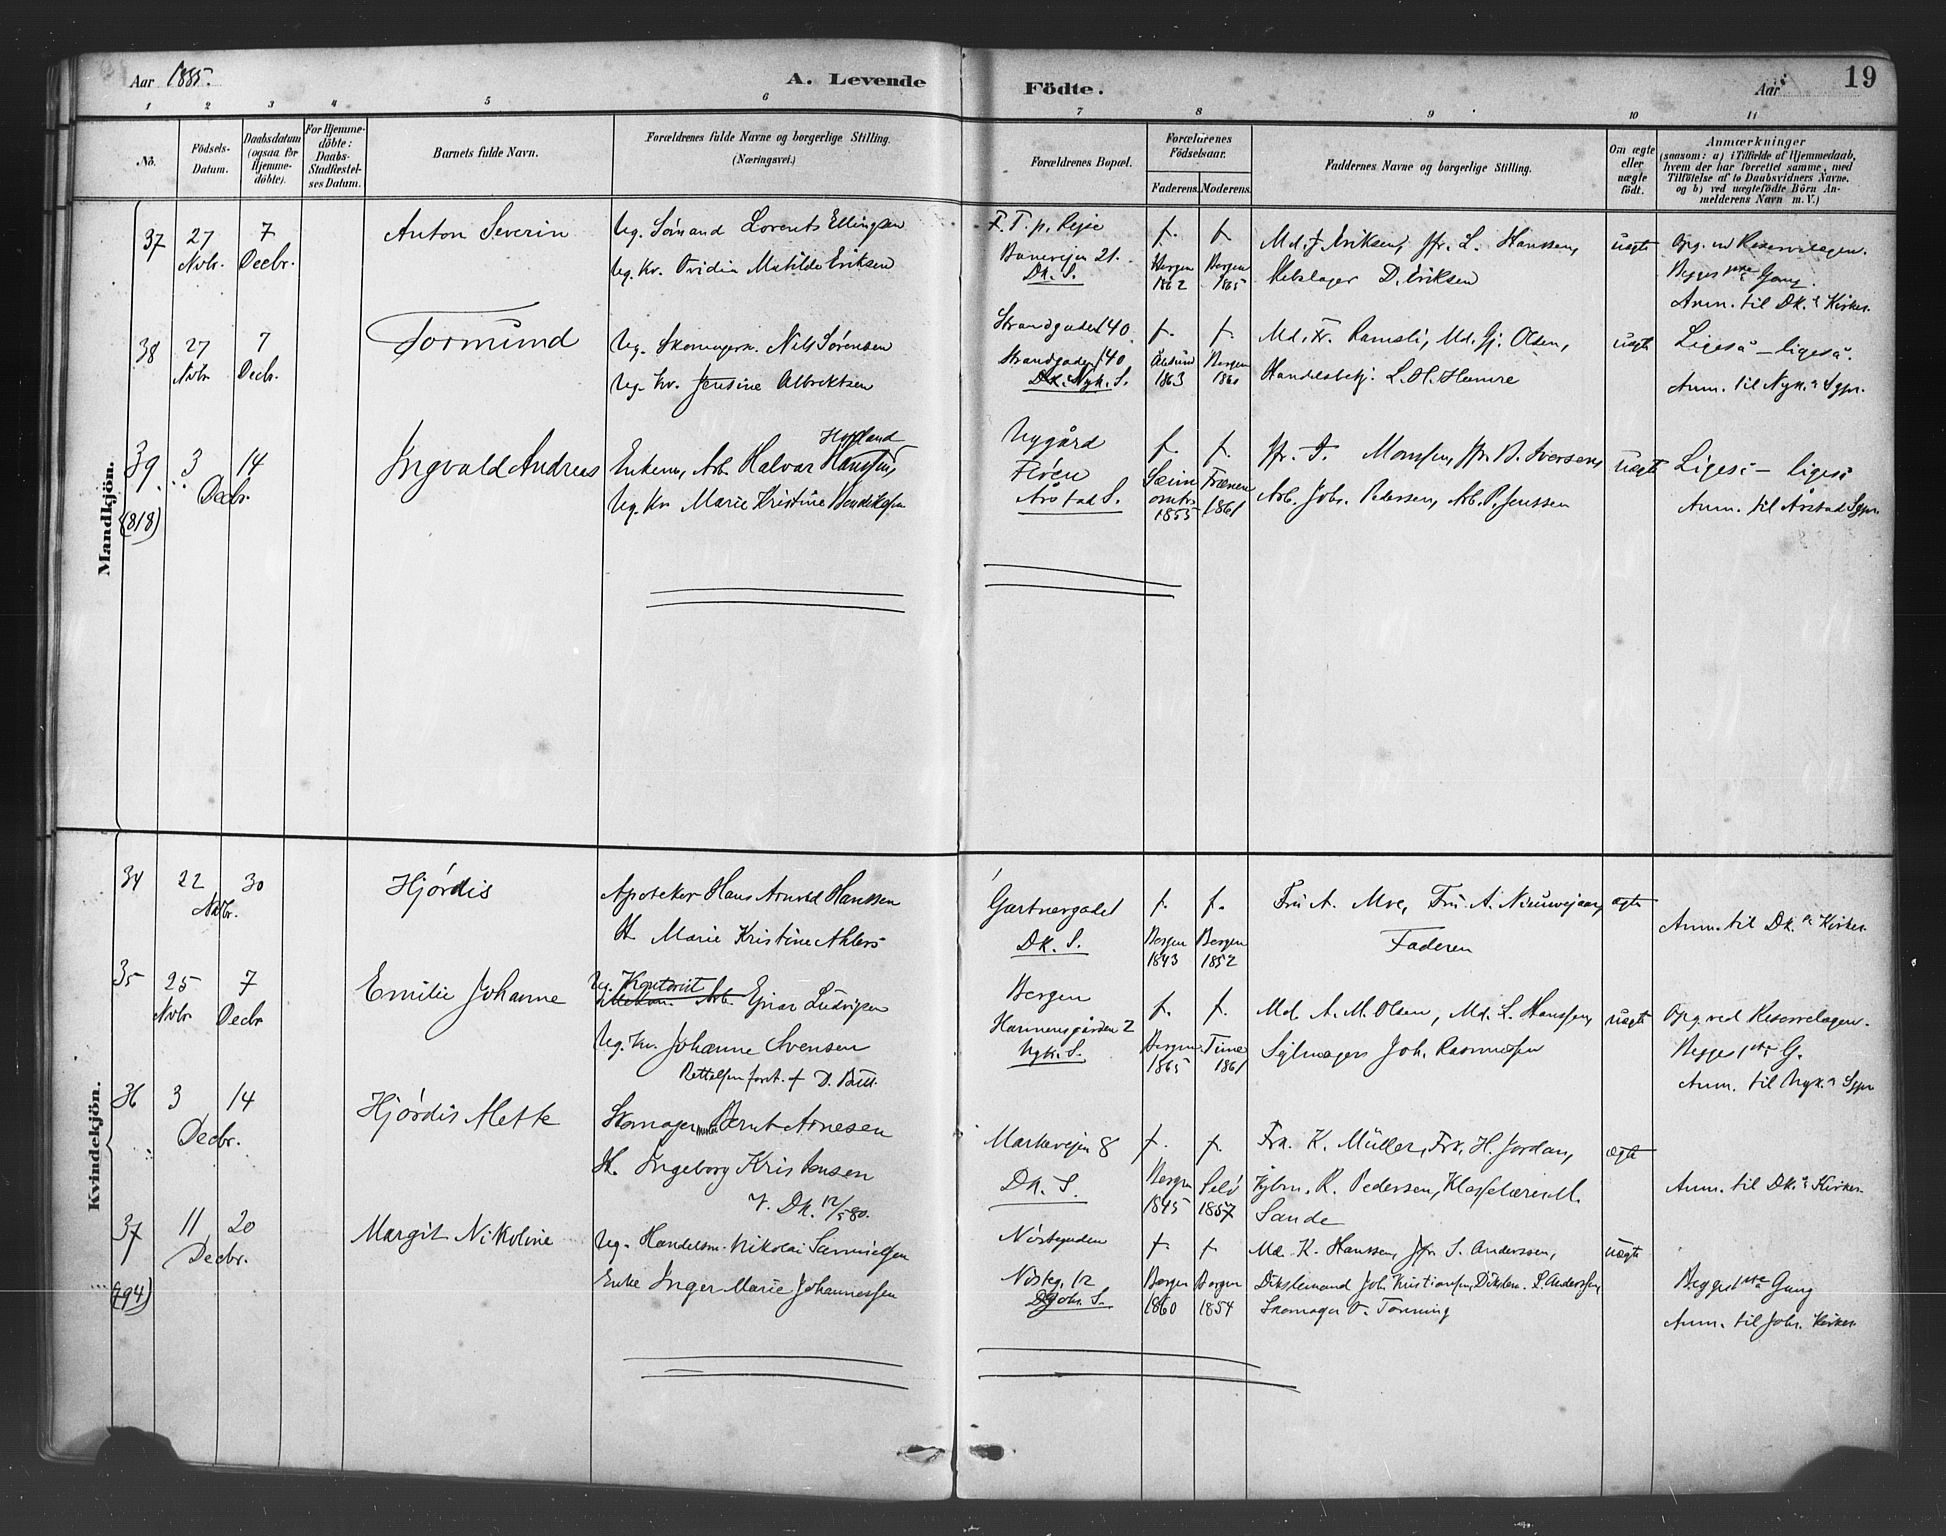 Aar 1885.
A. Levende Födte.
Aar
19
1 2 3 4 5 6 7 8 9 10 11
Nô.
Födsels-Datum.
Daabsdatum (ogsaa for Hjemme-döbte).
For Hjemme-döbte: Daabs-Stadfæstel-ses Datum.
Barnets fulde Navn.
Forældrenes fulde Navne og borgerlige Stilling.
(Næringsvei.)
Forældrenes Bopæl.
Forældrenes Födselsaar.
Faderens. Moderens.
Faddernes Navne og borgerlige Stilling.
Om ægte eller uægte födt.
Anmærkninger
(saasom: a) i Tilfælde af Hjemmedaab, hvem der har forrettet samme, med Tilföielse af to Daabsvidners Navne. og b) ved uægtefödte Börn An-melderens Navn m. V.)
Mandkjön.
37 27 Novbr. 7 Decbr.
Anton Severin
Ug. Sömand Lorents Ellingsen
Ug. Kv. Ovidia Matilde Eriksen
F. T. p. Rejse
Banevejen 21.
Dk. S.
f. Bergen 1862
f. Bergen 1865
Md. J. Eriksen, Jfr. L. Hanssen,
D. Eriksen
uægte
Opg. ved Reservelægen.
Begges 1ste Gang.
Anm. til Dk.s Kirkes.
38 27 Novbr. 7 Decbr.
Tormund
Ug. Skomagersv. Nils Sørensen
Ug. Kv. Jensine Albrektsen
Strandgaden 140
Strandgaden 140
Dk. Nyk. S.
f. Ålesund 1863
f. Bergen 1861
Md. Fr. Ramsli, Md. Gj. Olsen,
Handelsbetj. L. H. Hamre
uægte
Ligeså – ligeså.
Anm. til Nyk.s Sgpr.
39 3 14 Decbr.
(818)
Ingvald Andreas
Hopland
Enkem. Arb. Halvar Hanssen,
Ug. Kv. Marie Kristine Bendiksen
Nygård
Fløen
Årstad S.
f. Sæim omtr. 1855
f. 1861
Jfr. J. Monssen, Jfr. B. Iversen,
Arb. Johs. Pedersen, Arb. P. Jenssen
uægte
Ligeså – ligeså
Anm. til Årstad Sgpr.
Kvindekjön.
34 22 30 Novbr.
Hjördis
Apoteker Hans Arnold Hanssen
H. Marie Kristine Ahlers
Gartnergadet
Dk. S.
f. Bergen 1843
f. Bergen 1852
Fru A. Moe, Fru A.
Faderen
ægte
Anm. til Dk.s Kirkes.
35 25 Novbr 7 Decbr
Emilie Johanne
Ug. Kontorist
Arb. Ejnar Ludvigsen
Ug. Kv. Johanne Svensen
Bergen
2
Nyk. S.
f. Bergen 1865
f. Time 1861
Md. A. M. Olsen, Md. L. Hanssen,
Sejlmager Joh. Rasmussen
uægte
Opg. ved Reservelægen.
Begges 1ste G.
Anm. til Nyk.s Sgpr
36 3 14 Decbr.
Hjördis Mette
Skomager Bernt Arnesen
H. Ingeborg Kristensen
V. Dk. 12/5 80.
Markevejen 8
Dk. S.
f. Bergen 1845
f. 1857
Frk. K. Müller, Frk. H. Jordan,
R. Pedersen, M.
Sande
ægte
Anm. til Dk.s Kirkes.
37 11 20 Decbr.
(794)
Margit Nikoline
Ug. Handelsm. Nikolai Samuelsen
Enke Inger Marie Johannessen
Nöstegaden
Nösteg. 12
Johs. S.
f. Bergen 1860
f. Bergen 1854
Md. K. Hanssen, Jfr S. Anderssen,
Dikslemand Joh. Kristiansen, Dikslem. L. Anderssen,
Skomager O. Tonning
uægte
Begges 1ste Gang
Anm. til Johs. Kirkes.